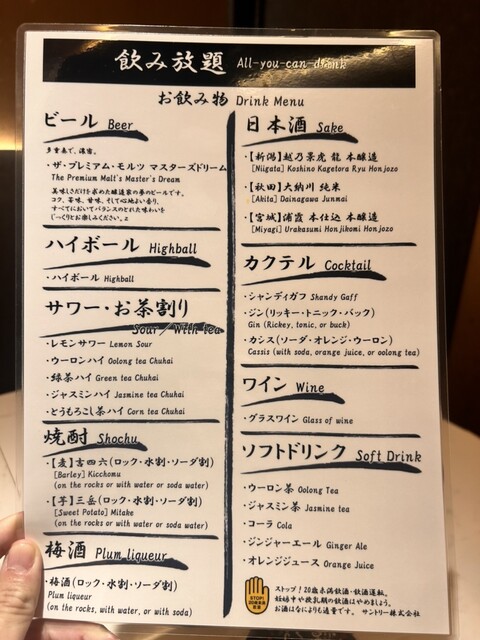 飲み放題 All-you-can-drink
お飲み物 Drink Menu
ビール Beer
多重奏で、濃密。
・ザ・プレミアム・モルツ マスターズドリーム
The Premium Malt's Master's Dream
美味しさだけを求めた醸造家の夢のビールです。
コク、苦味、甘味、そして心地よい香り。
すべてにおいてバランスのとれた味わいを
じっくりとお楽しみください。
ハイボール Highball
・ハイボール Highball
サワー・お茶割り
Sour／With tea
・レモンサワー Lemon Sour
・ウーロンハイ Oolong tea Chuhai
・緑茶ハイ Green tea Chuhai
・ジャスミンハイ Jasmine tea Chuhai
・とうもろこし茶ハイ Corn tea Chuhai
焼酎 Shochu
・【麦】吉四六(ロック・水割・ソーダ割)
[Barley] Kicchomu
(on the rocks or with water or soda water)
・【芋】三岳(ロック・水割・ソーダ割)
[Sweet Potato] Mitake
(on the rocks or with water or soda water)
梅酒 Plum liqueur
・梅酒(ロック・水割・ソーダ割)
Plum liqueur
(on the rocks, with water, or with soda)
日本酒 Sake
・【新潟】越乃景虎 龍 本醸造
[Niigata] Koshino Kagetora Ryu Honjozo
・【秋田】大納川 純米
[Akita] Dainagawa Junmai
・【宮城】浦霞 本仕込 本醸造
[Miyagi] Urakasumi Honjikomi Honjozo
カクテル Cocktail
・シャンディガフ Shandy Gaff
・ジン(リッキー・トニック・バック)
Gin (Rickey, tonic, or buck)
・カシス(ソーダ・オレンジ・ウーロン)
Cassis (with soda, orange juice, or oolong tea)
ワイン Wine
・グラスワイン Glass of wine
ソフトドリンク Soft Drink
・ウーロン茶 Oolong Tea
・ジャスミン茶 Jasmine tea
・コーラ Cola
・ジンジャーエール Ginger Ale
・オレンジジュース Orange Juice
STOP!
ストップ！20歳未満飲酒・飲酒運転。
妊娠中や授乳期の飲酒はやめましょう。
お酒はなによりも適量です。 サントリー株式会社